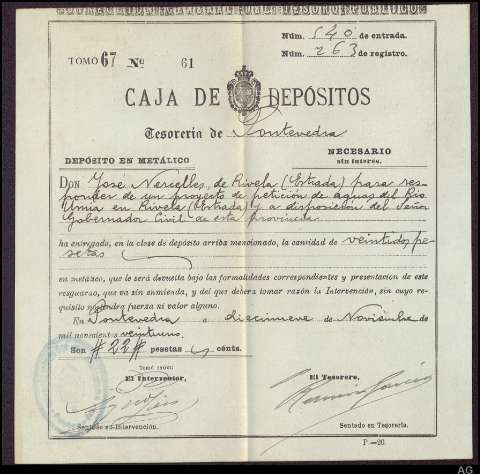 Núm. 540 de entrada.
Núm. 263 de registro.
TOMO 67 Nº 61
CAJA DE DEPÓSITOS
Tesorería de Pontevedra
DEPÓSITO EN METÁLICO
NECESARIO
sin interés.
DON José Nercelles, de Rivela (Estrada) para res-
ponder de un proyecto de petición de aguas del Rio
Umia en Rivela (Estrada) y a disposición del Señor
Gobernador Civil de esta provincia
ha entregado, en la clase de depósito arriba mencionado, la cantidad de veintidos pe-
setas
en metálico, que le será devuelta bajo las formalidades correspondientes y presentación de este
resguardo, que va sin enmienda, y del que deberá tomar razón la Intervención, sin cuyo re-
quisito no tendrá fuerza ni valor alguno.
En Pontevedra a diecinueve de Noviembre de
mil novecientos veintiuno.
Son #22# pesetas cénts.
Tomé razón:
El Interventor,
El Tesorero,
Ramón García
Sentado en Intervención.
Sentado en Tesorería.
P.-20.
AG